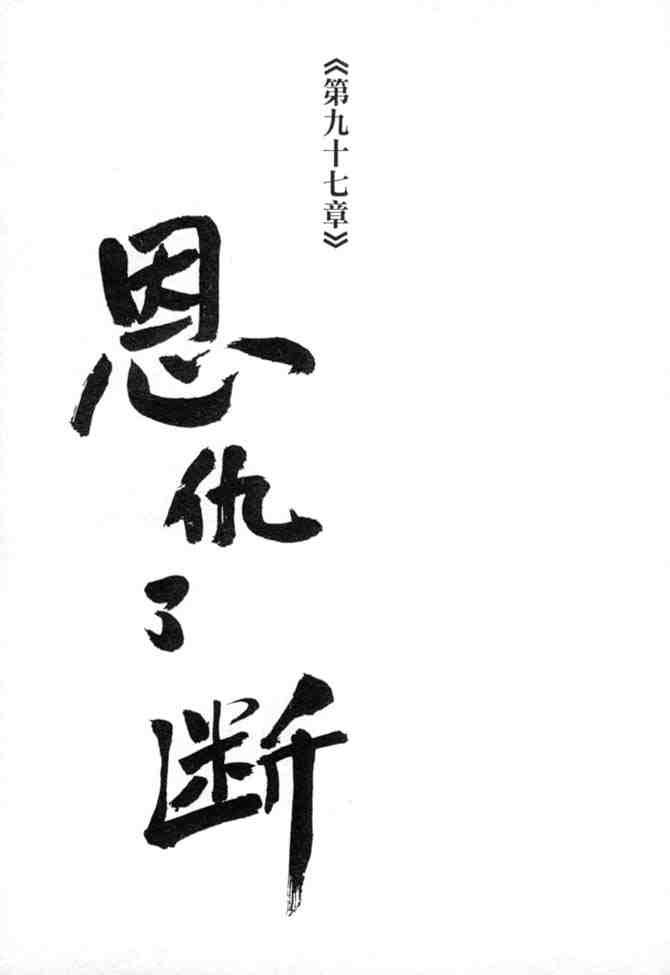 《第九十七章》
恩仇了断